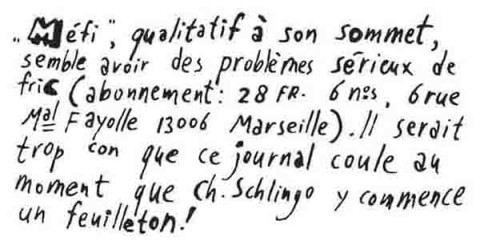 "Méfi", qualitatif à son sommet,
semble avoir des problèmes sérieux de
fric (abonnement: 28 FR. 6 nos, 6 rue
Mal Fayolle 13006 Marseille). Il serait
trop con que ce journal coule au
moment que Ch. Schlingo y commence
un feuilleton!